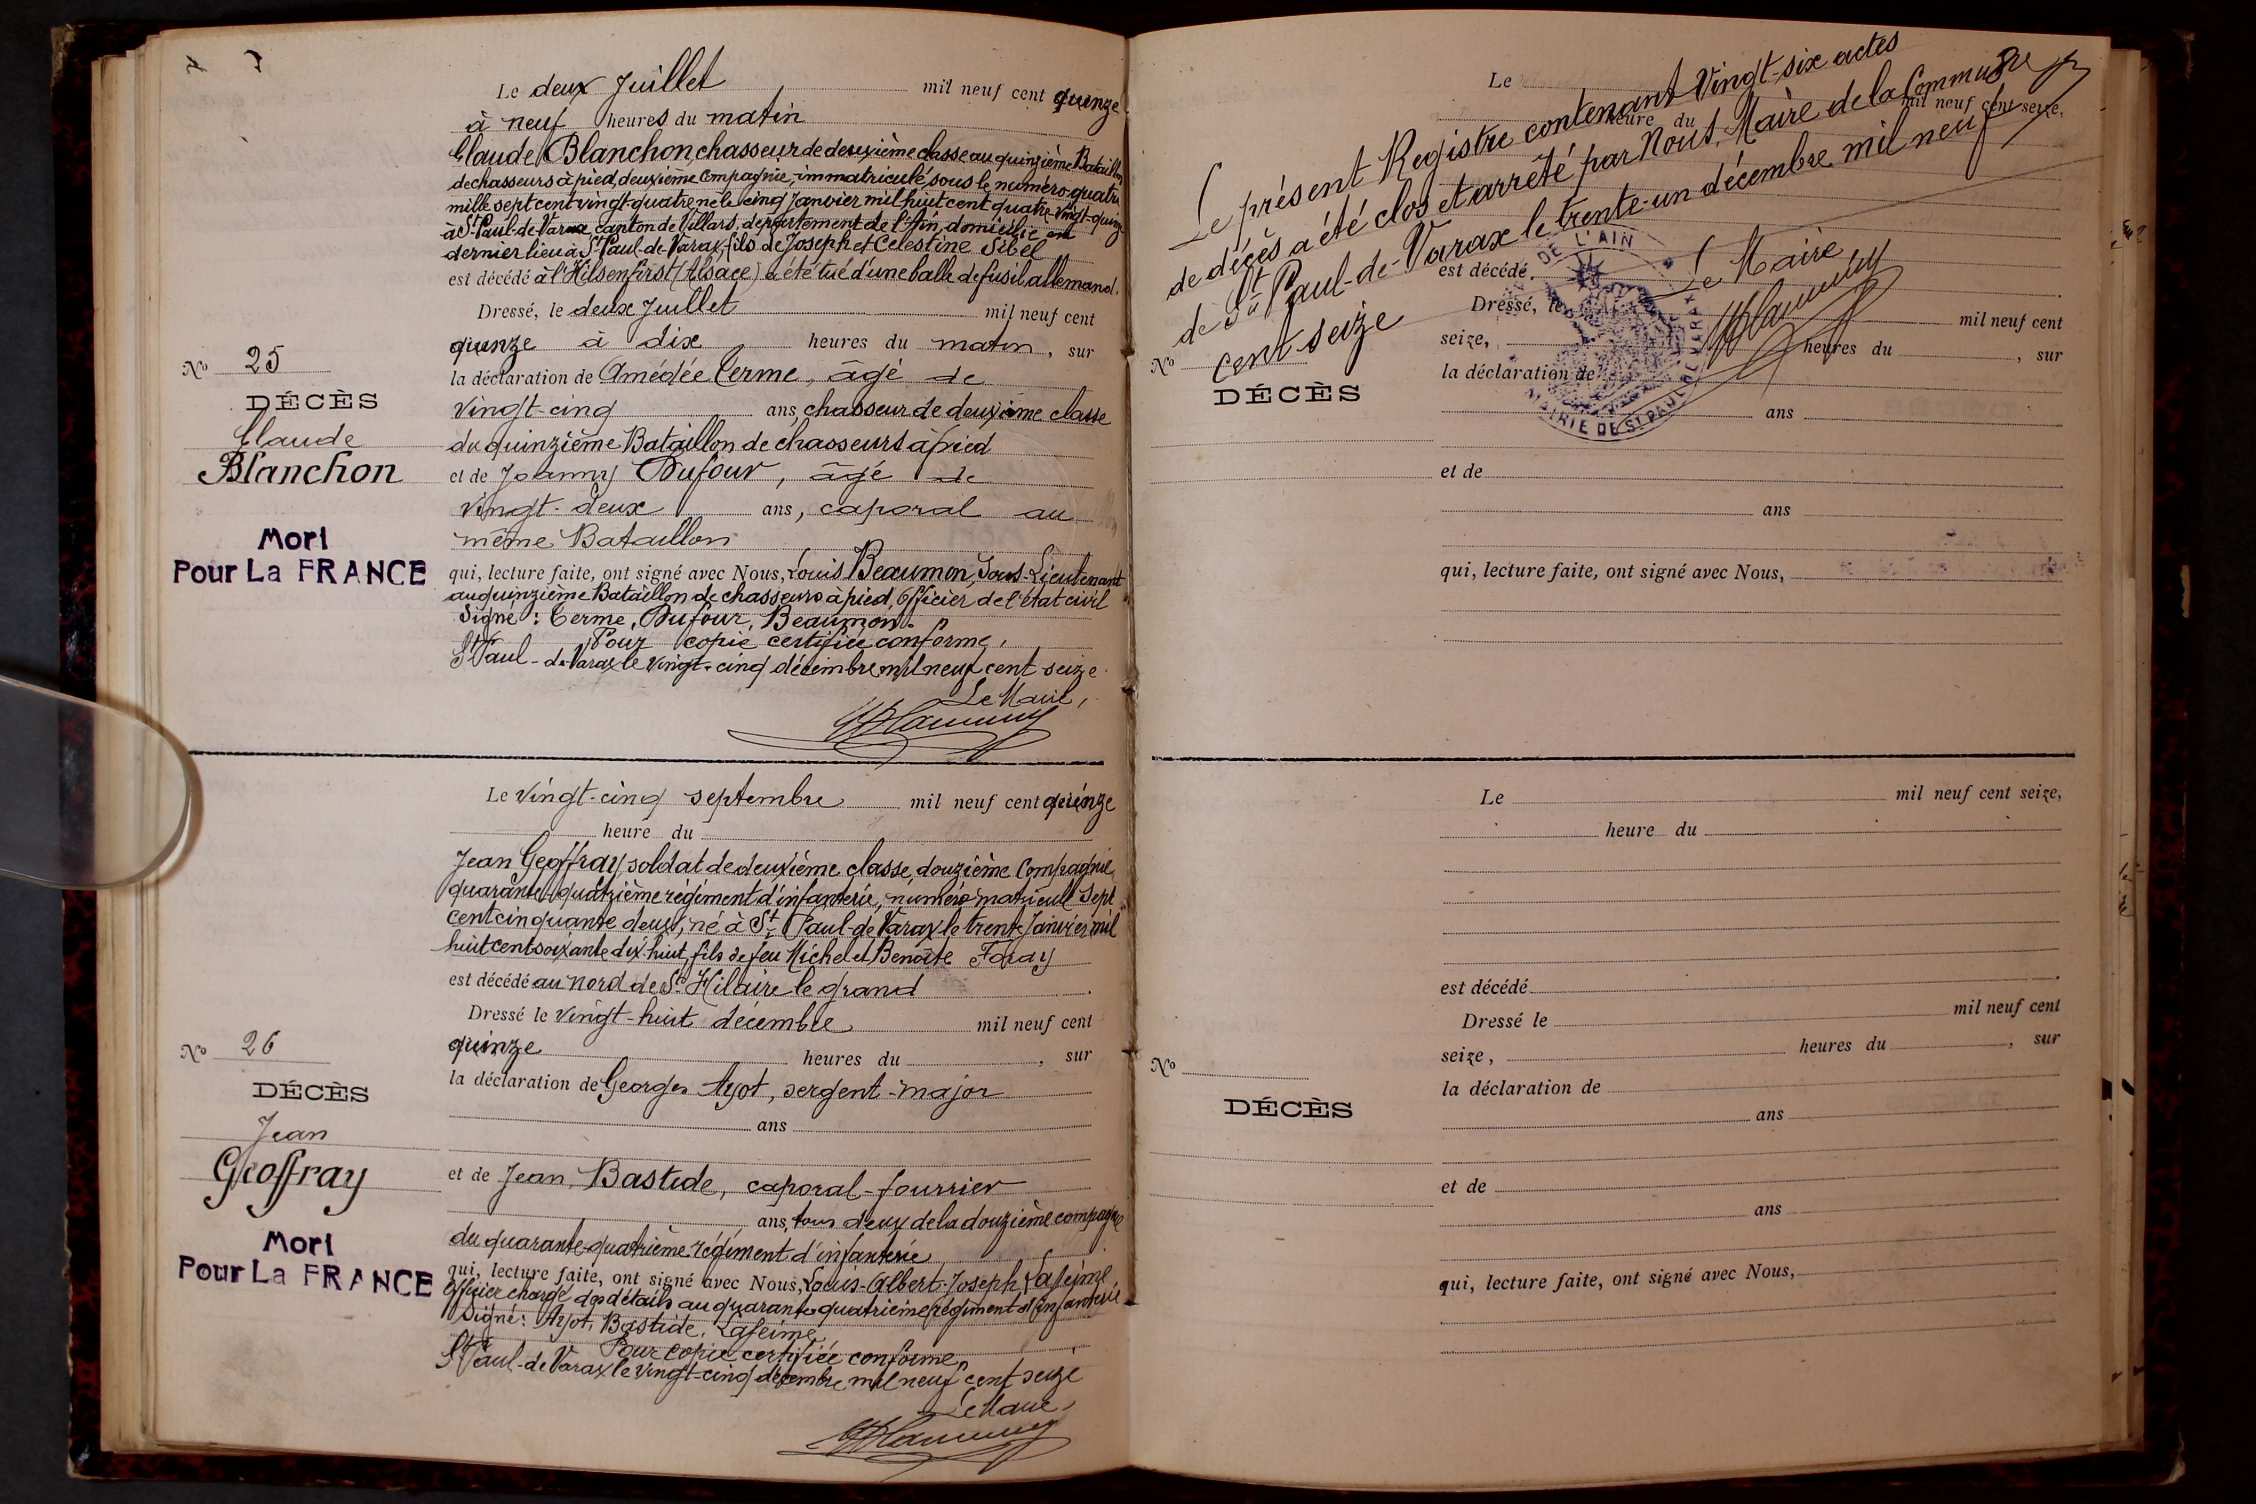 Le deux Juillet mil neuf cent quinze
à neuf heures du matin
Claude Blanchon, chasseur de deuxième classe au quinzième Bataillon
de chasseurs à pied, deuxième Compagnie, immatriculé sous le numéro quatre
mille sept cent vingt-quatre, né le cinq Janvier mil huit cent quatre-vingt-quinze
à St Paul-de-Varax canton de Villars, département de l'Ain, domicilié en
dernier lieu à St Paul-de-Varax, fils de Joseph et Celestine Sibel
est décédé à l'Hilsenfirst (Alsace) a été tué d'une balle de fusil allemand.
Dressé, le deux Juillet mil neuf cent
quinze à dix heures du matin, sur
la déclaration de Amédée Terme, âgé de
vingt-cinq ans, chasseur de deuxième classe
du quinzième Bataillon de chasseurs à pied
et de Joanny Dufour, âgé de
vingt-deux ans, caporal au
même Bataillon
qui, lecture faite, ont signé avec Nous, Louis Beaumon, Sous-Lieutenant
au quinzième Bataillon de chasseurs à pied, Officier de l'état civil
Signé: Terme, Dufour, Beaumon.
Pour copie certifiée conforme,
St Paul-de-Varax le vingt-cinq décembre mil neuf cent seize
Le Maire,
No 25
DÉCÈS
Claude
Blanchon
Mort
Pour La FRANCE
Le vingt-cinq septembre mil neuf cent quinze
heure du
Jean Geoffray, soldat de deuxième classe, douzième Compagnie
quarante-quatrième régiment d'infanterie, numéro matricule sept
cent cinquante deux, né à St Paul-de-Varax le trente Janvier mil
huit cent soixante dix-huit, fils de feu Michel et Benoîte Foray
est décédé au nord de St Hilaire le grand
Dressé le vingt-huit decembre mil neuf cent
quinze heures du , sur
la déclaration de Georges Ayot, sergent-major
ans
et de Jean Bastide, caporal-fourrier
ans, tous deux de la douzième compagnie
du quarante-quatrième régiment d'infanterie
qui, lecture faite, ont signé avec Nous, Louis-Albert-Joseph Lafeime
Officier chargé des détails au quarante-quatrième régiment d'infanterie
Signé: Ayot, Bastide, Lafeime
Pour copie certifiée conforme,
St Paul-de-Varax le vingt-cinq décembre mil neuf cent seize
Le Maire,
No 26
DÉCÈS
Jean
Geoffray
Mort
Pour La FRANCE
Le présent Registre contenant Vingt-six actes
de décès a été clos et arrêté par Nous, Maire de la Commune
de St Paul-de-Varax le trente-un décembre mil neuf
cent seize
Le Maire
DE L'AIN
MAIRIE DE ST PAUL DE VARAX
Le
heure du mil neuf cent seize,
est décédé
Dressé, le mil neuf cent
seize, heures du , sur
la déclaration de
ans
et de
ans
qui, lecture faite, ont signé avec Nous,
No
DÉCÈS
Le mil neuf cent seize,
heure du
est décédé
Dressé le mil neuf cent
seize, heures du , sur
la déclaration de
ans
et de
ans
qui, lecture faite, ont signé avec Nous,
No
DÉCÈS